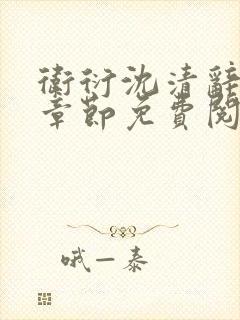 衛衍沈清辭
章節免費閱
哦一泰